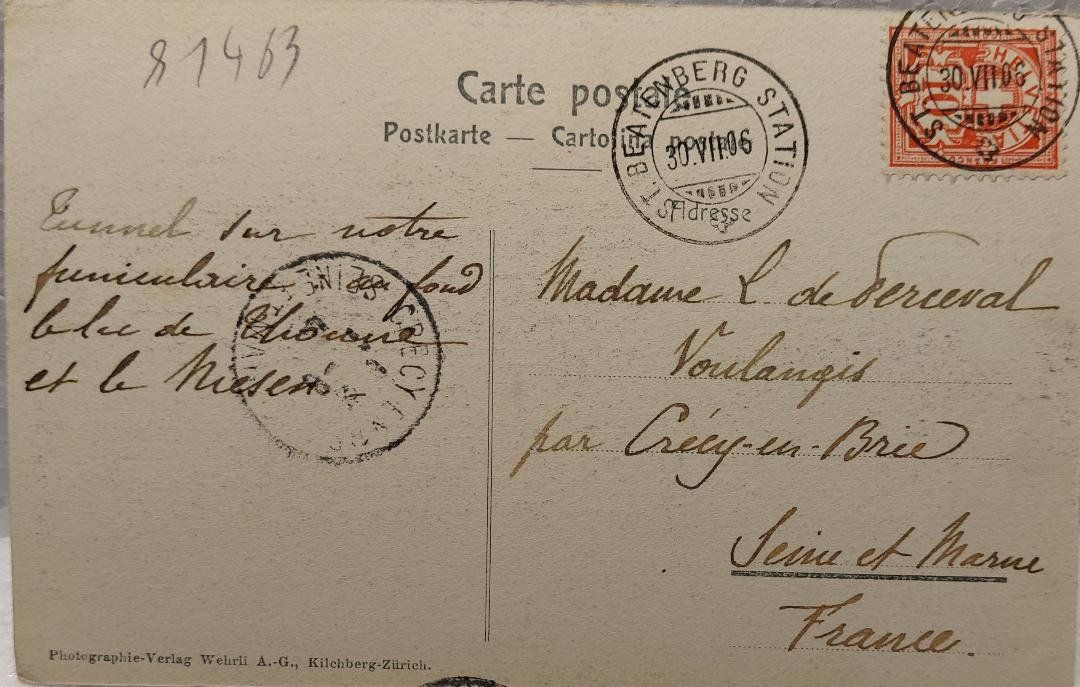 81463
Carte postale
Postkarte — Cartolina postale
ST. BEATENBERG STATION
30.VII.06
ST. BEATENBERG STATION
30.VII.06
10
Adresse
Tunnel sur notre
funiculaire au fond
le lac de Thoune
et le Niesen
CRECY
SEINE
Madame L. de Perceval
Voulangis
par Crécy-en-Brie
Seine et Marne
France.
Photographie-Verlag Wehrli A.-G., Kilchberg-Zürich.